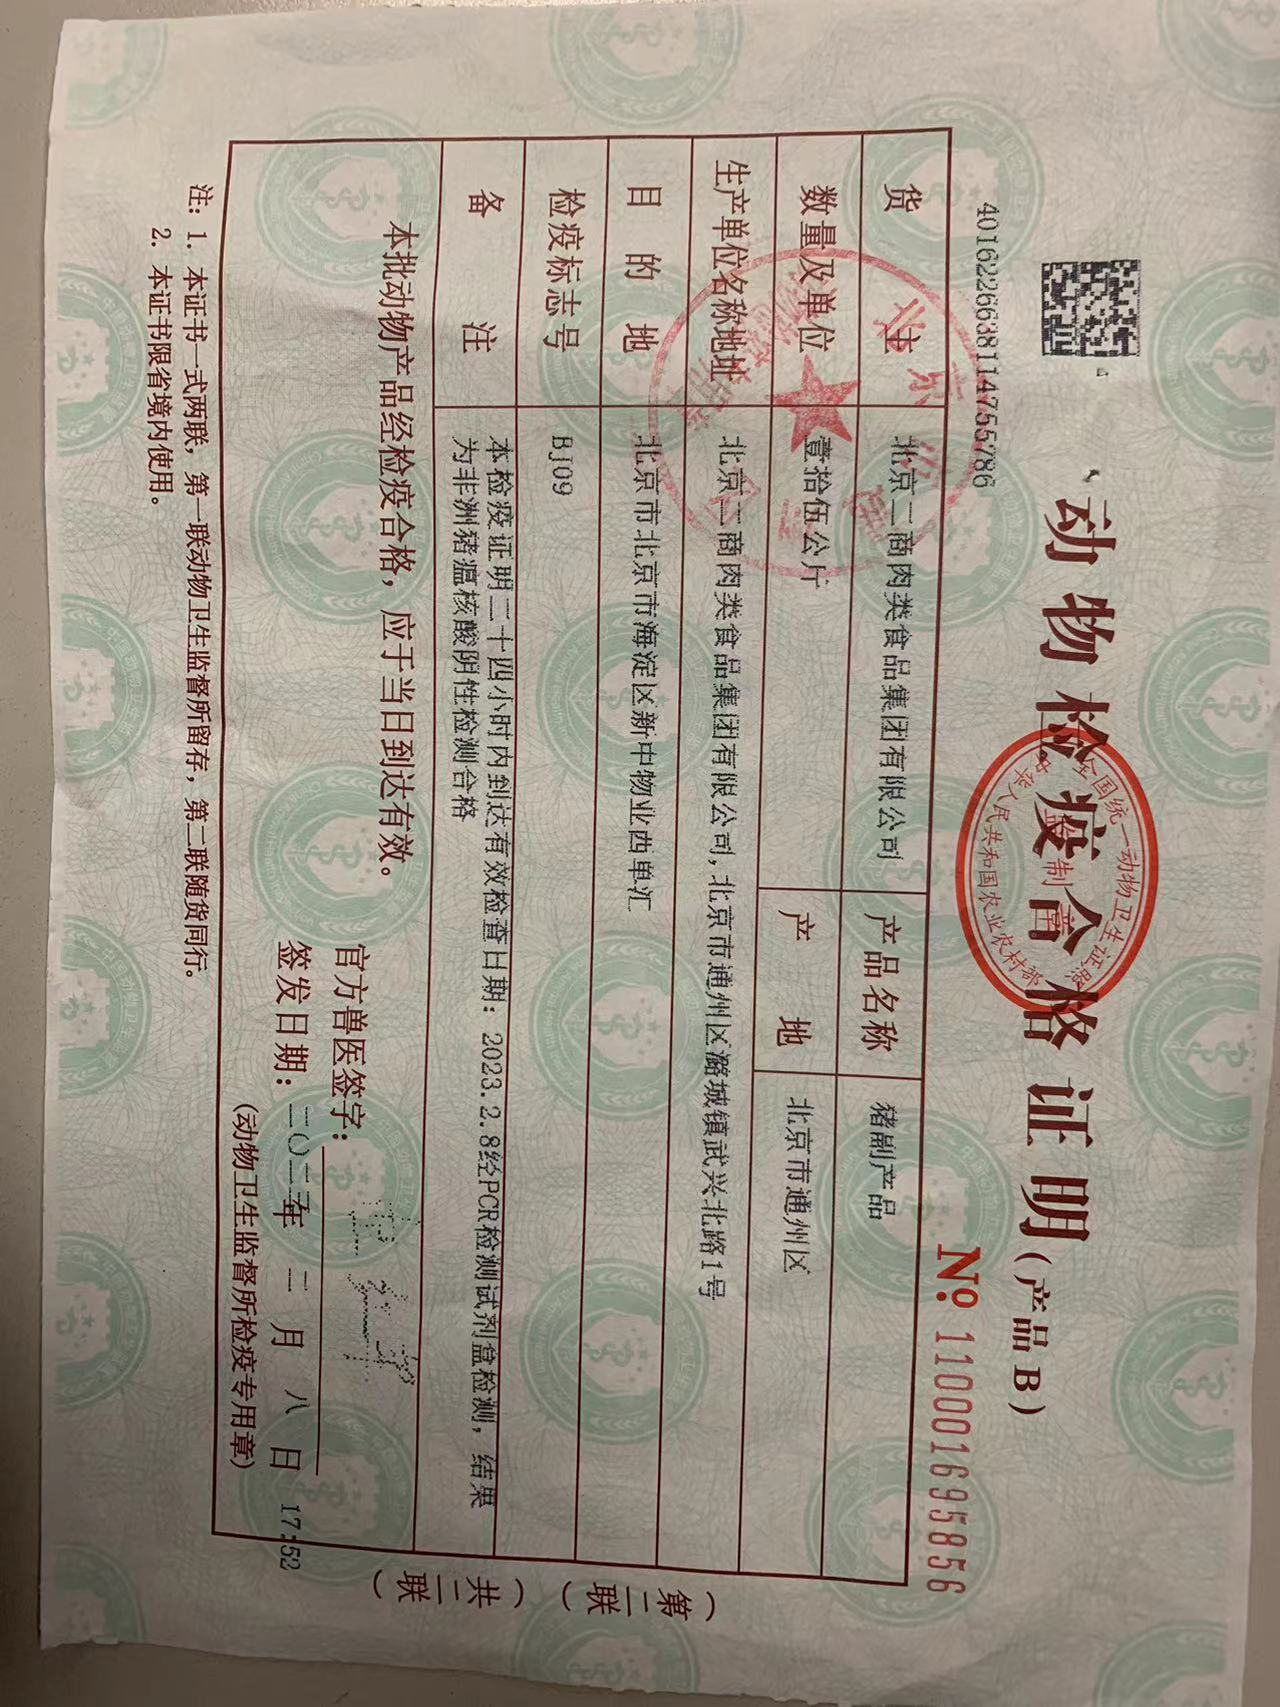 动物检疫合格证明(产品 B)
40162266381147557​86
№ 110001695856
货 主 北京二商肉类食品集团有限公司 产品名称 猪副产品
数量及单位 壹拾伍公斤 产 地 北京市通州区
生产单位名称地址 北京二商肉类食品集团有限公司,北京市通州区潞城镇武兴北路1号
目 的 地 北京市北京市海淀区新中物业西单汇
检疫标志号 BJ09
备 注 本检疫证明二十四小时内到达有效检查日期: 2023.2.8经PCR检测试剂盒检测, 结果
为非洲猪瘟核酸阴性检测合格
本批动物产品经检疫合格, 应于当日到达有效。
官方兽医签字:
签发日期: 二〇二三年 二 月 八 日 17:52
(动物卫生监督所检疫专用章)
注: 1. 本证书一式两联, 第一联动物卫生监督所留存, 第二联随货同行。
2. 本证书限省境内使用。
(第二联)
(共二联)
全国统一动物卫生证照
监制章
中华人民共和国农业农村部